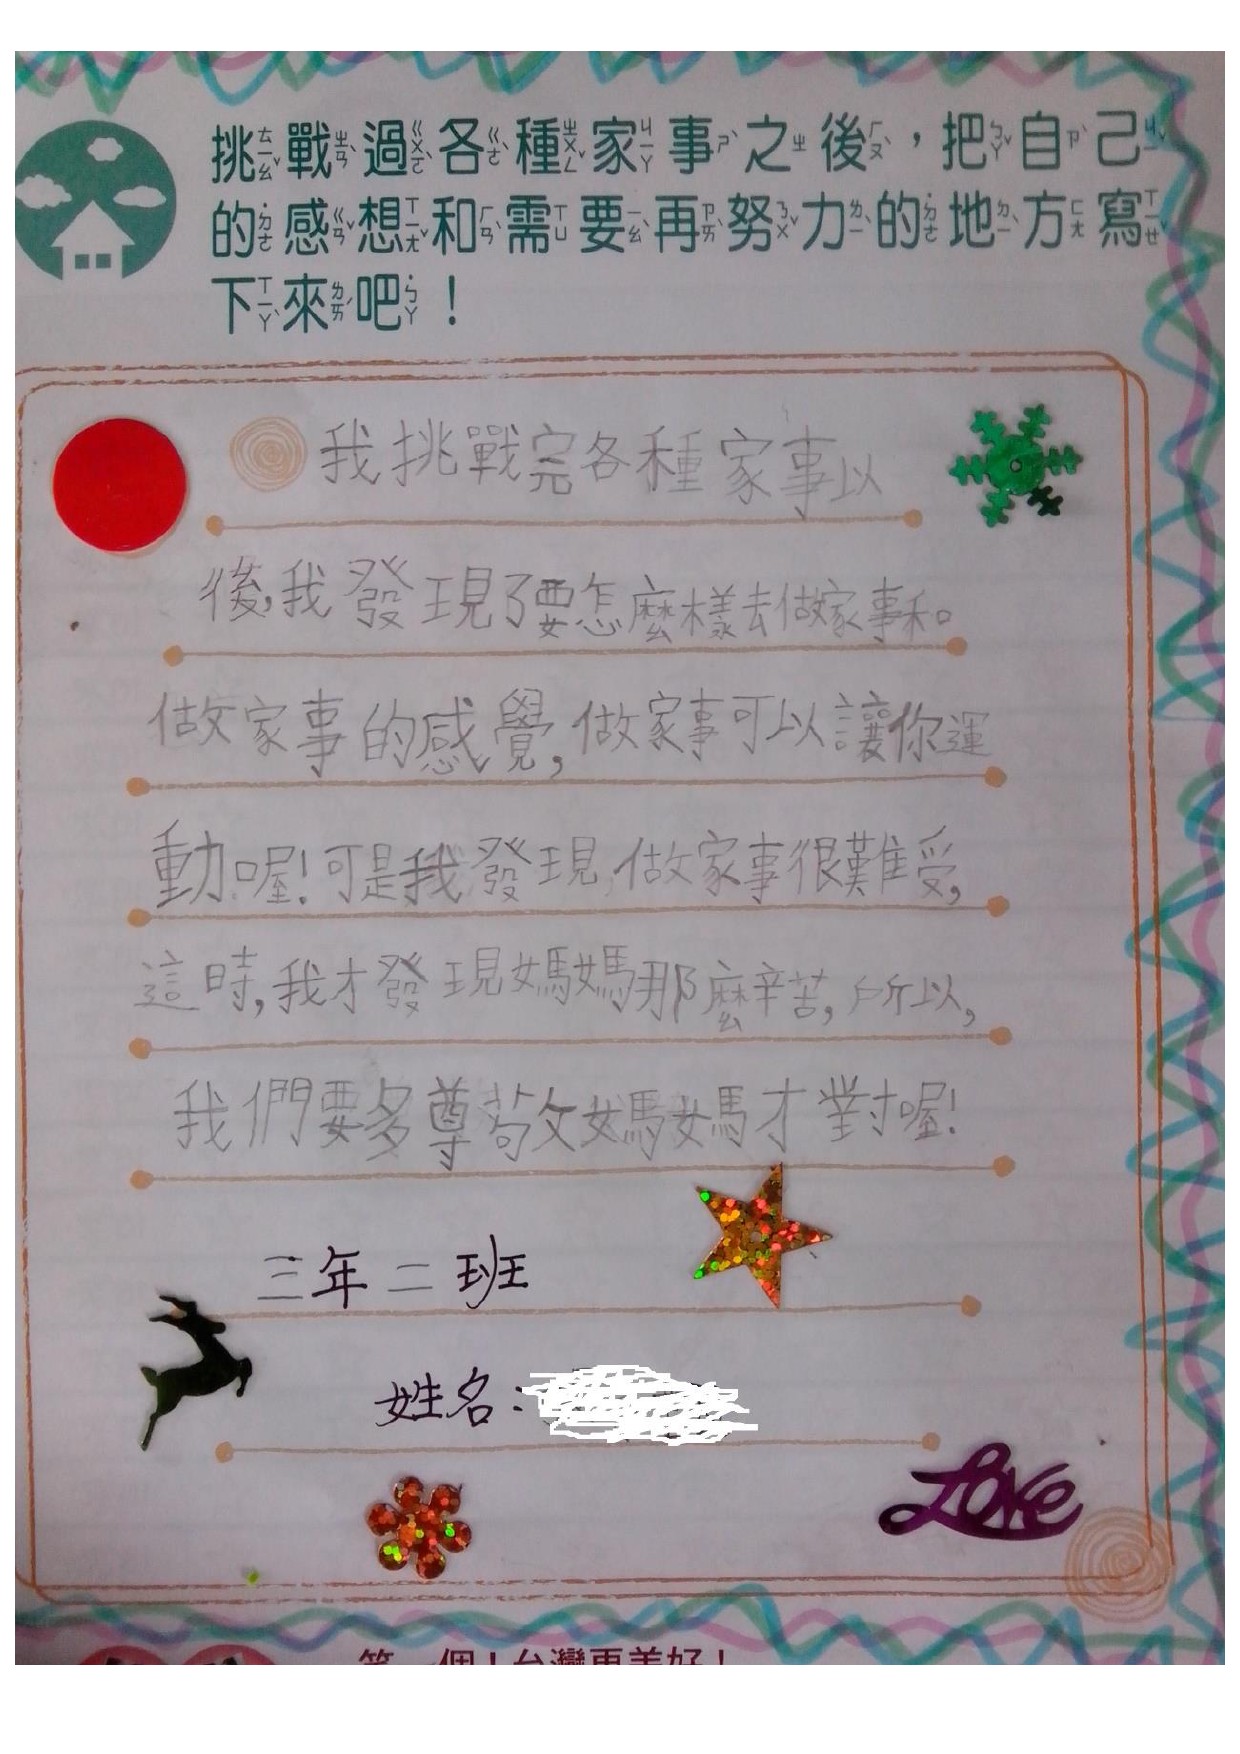 挑戰過各種家事之後，把自己
的感想和需要再努力的地方寫
下來吧！
我挑戰完各種家事以
後,我發現了要怎麼樣去做家事和
做家事的感覺,做家事可以讓你運
動喔!可是我發現,做家事很難受,
這時,我才發現媽媽那麼辛苦,所以,
我們要多尊敬媽媽才對喔!
三年二班
姓名:
Love
台灣更美好！